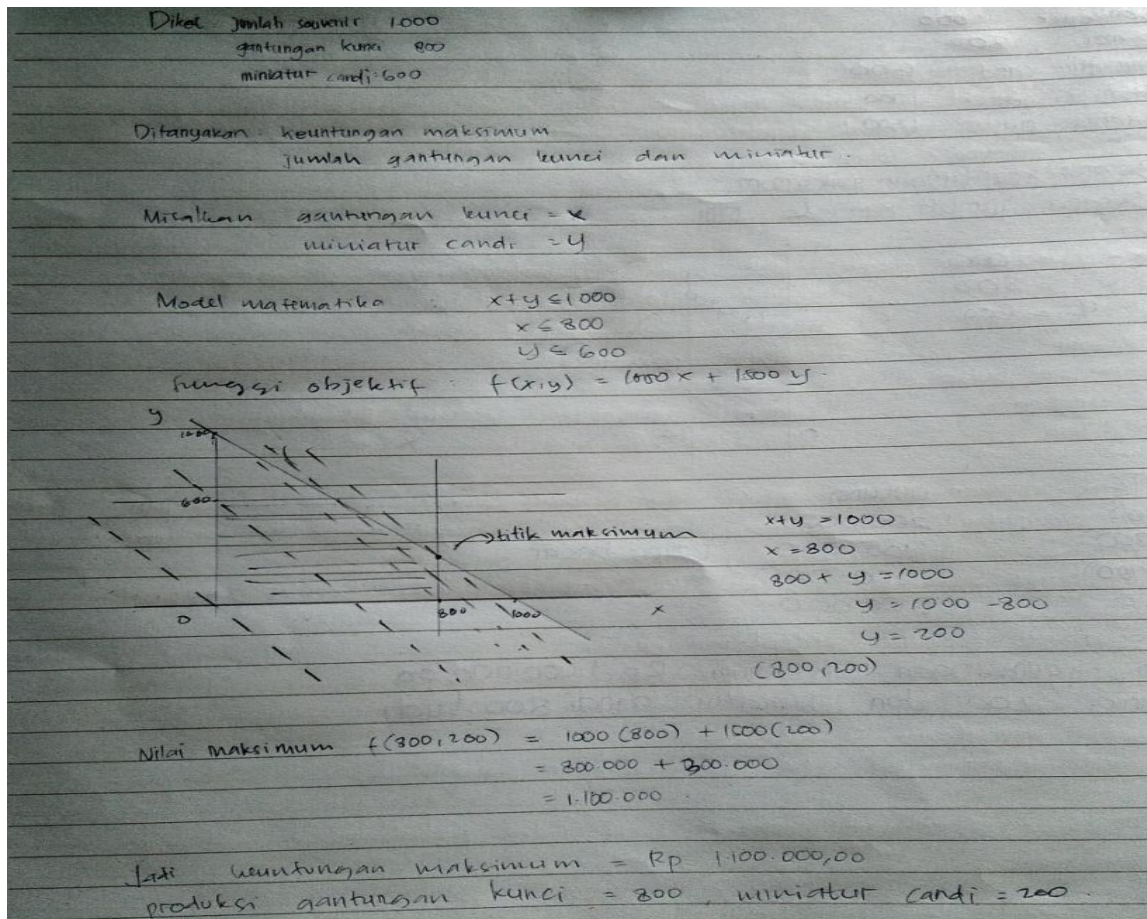 Diket jumlah souvenir 1000
gantungan kunci 800
miniatur candi : 600
Ditanyakan : keuntungan maksimum
jumlah gantungan kunci dan miniatur.
Misalkan gantungan kunci = x
miniatur candi = y
Model matematika : x+y ≤ 1000
x ≤ 800
y ≤ 600
fungsi objektif : f(x,y) = 1000x + 1500y.
y
1000
600
titik maksimum
0
800
1000
x
x+y = 1000
x = 800
800 + y = 1000
y = 1000 - 800
y = 200
(800,200)
Nilai maksimum f(800,200) = 1000 (800) + 1500 (200)
= 800.000 + 300.000
= 1.100.000
Jadi keuntungan maksimum = Rp 1.100.000,00
produksi gantungan kunci = 800, miniatur candi = 200.